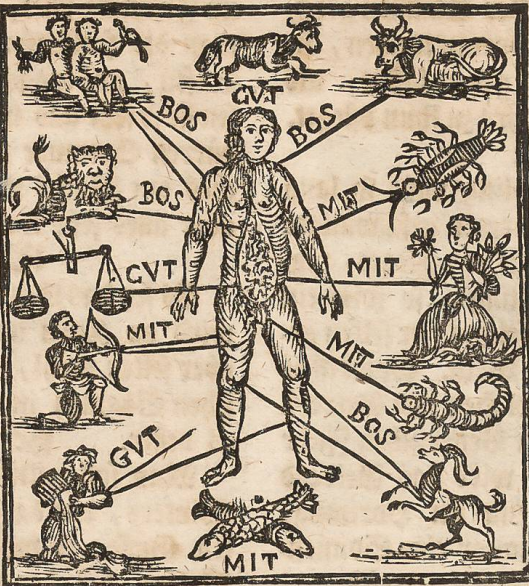 GVT
BOS
BOS
BOS
MIT
GVT
MIT
MIT
MIT
BOS
GVT
MIT